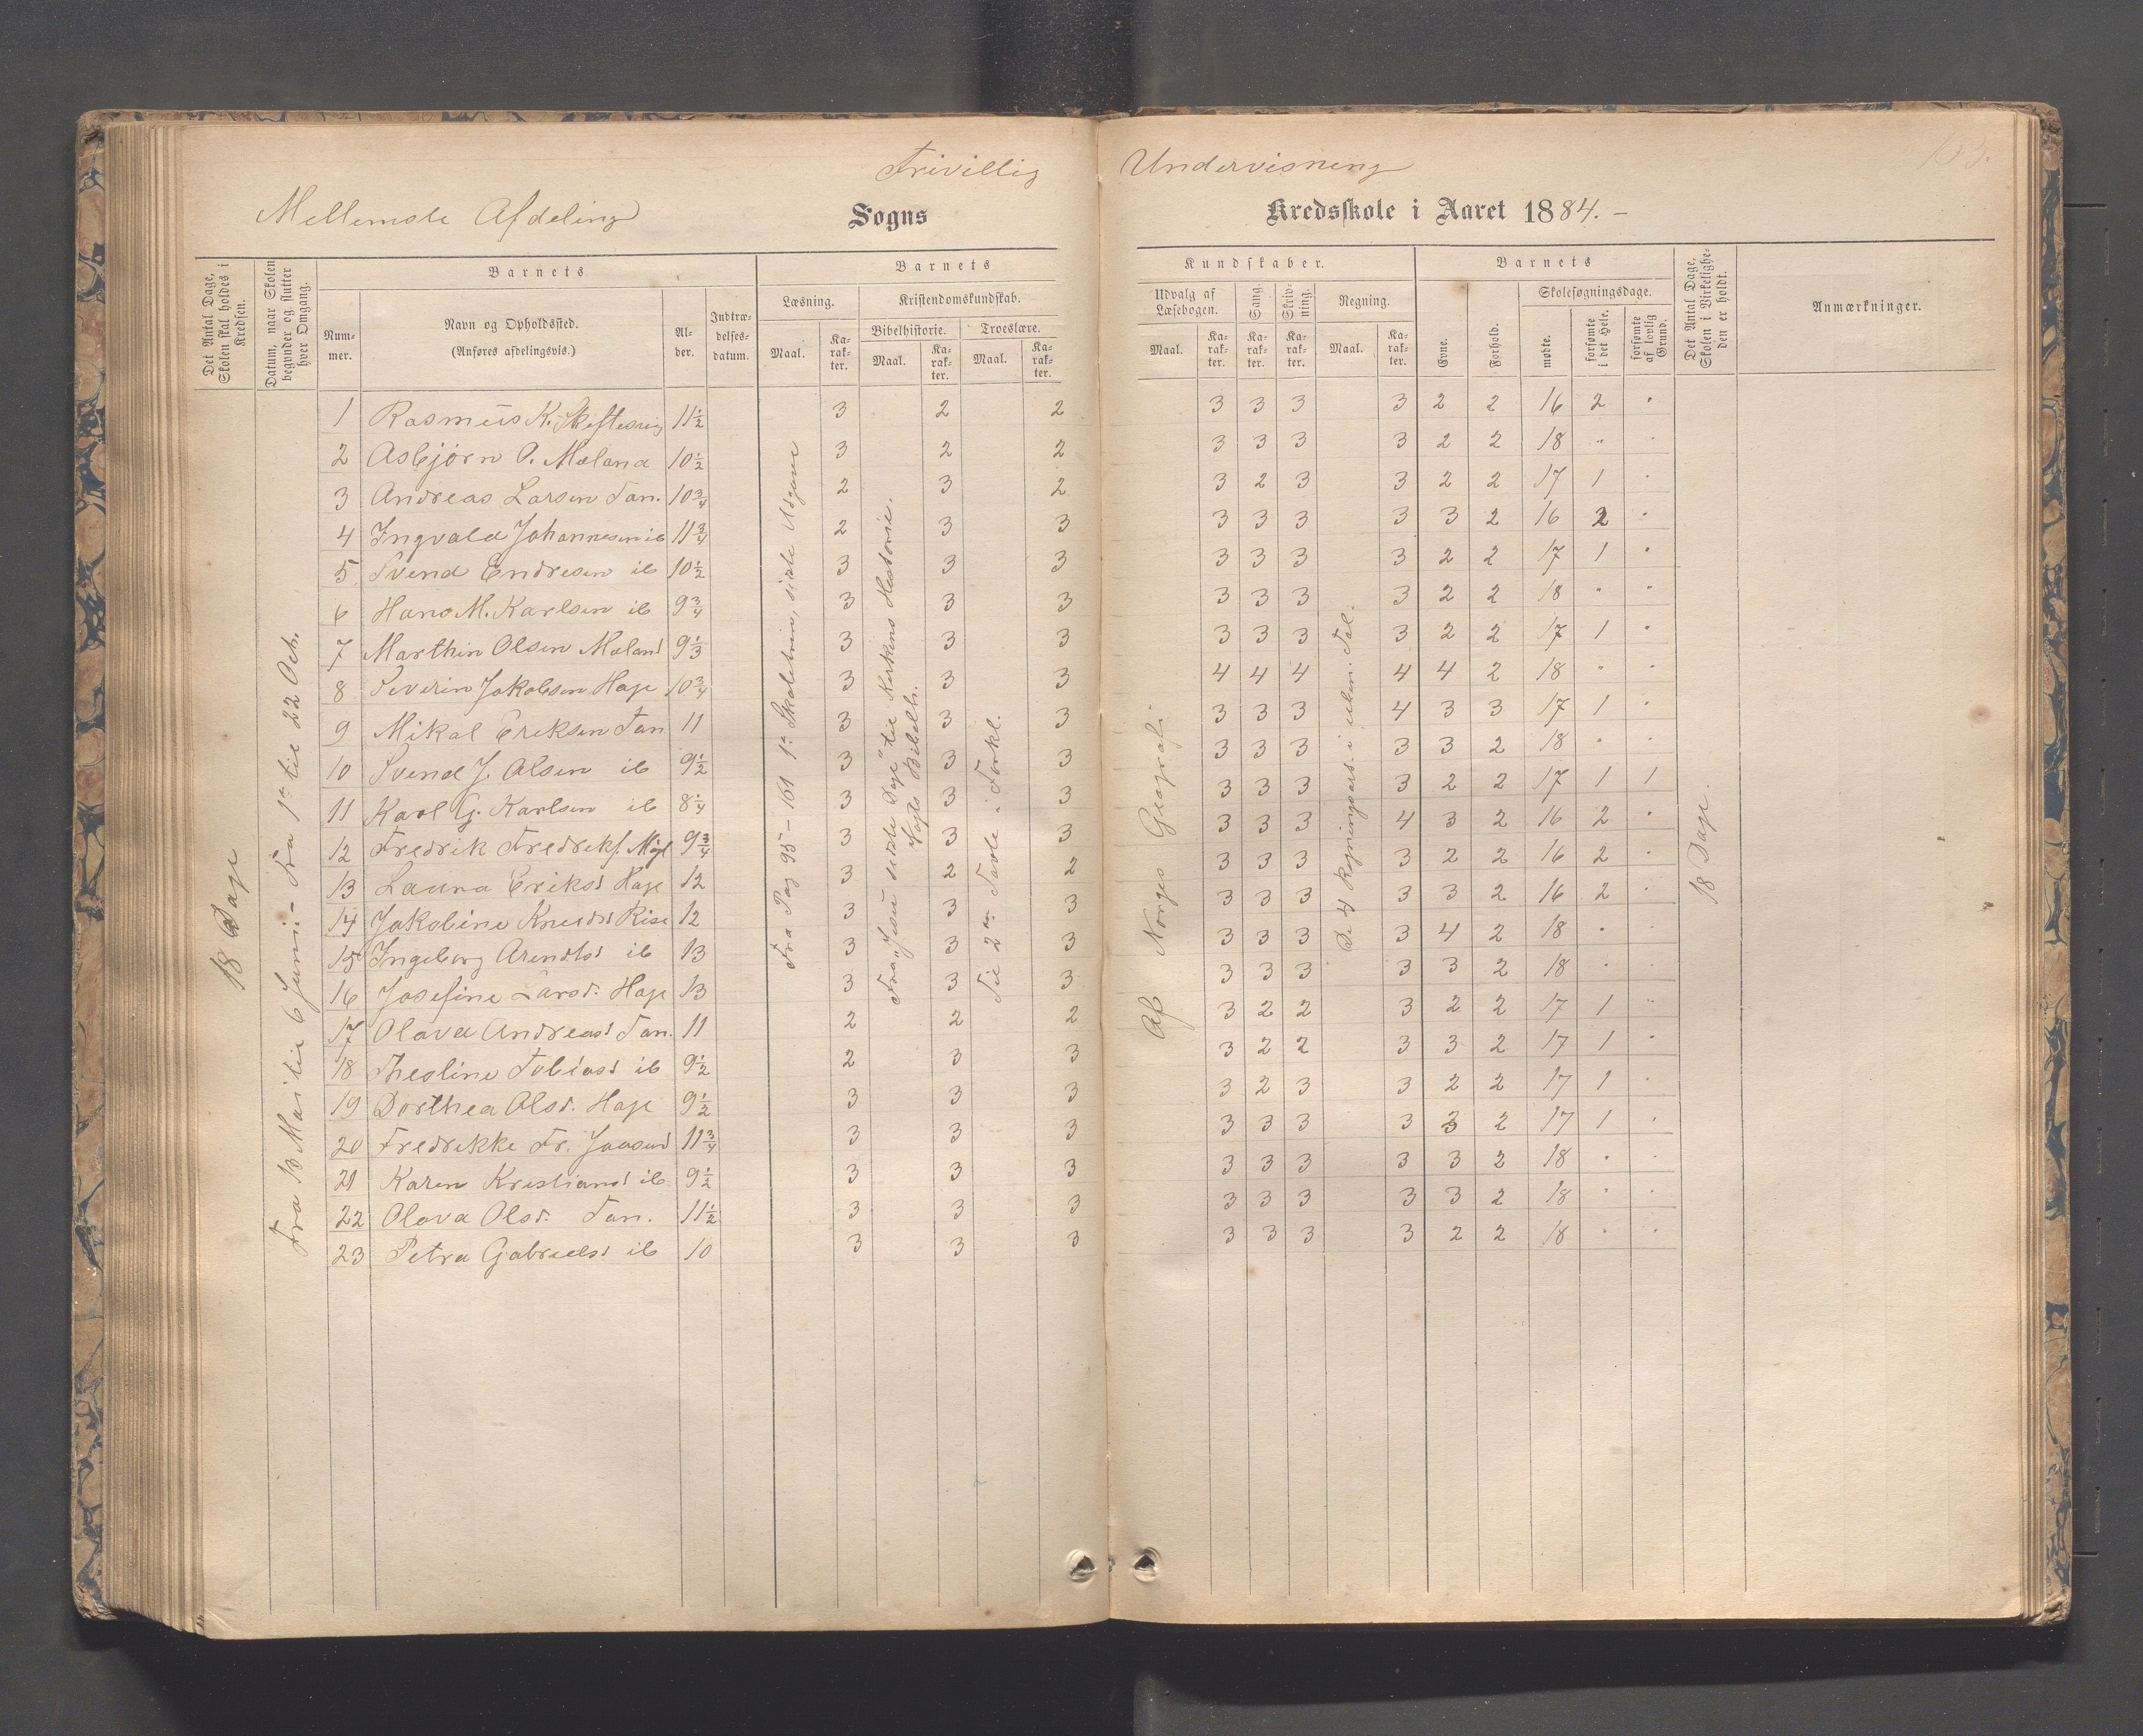 Frivillig Undervisning
Mellemste Afdeling Sogns Kredsskole i Aaret 1884. -
Det Antal Dage, Skolen skal holdes i Kredsen.
Datum, naar Skolen begynder og slutter hver Omgang.
Barnets
Num-
mer.
Navn og Opholdssted.
(Anføres afdelingsvis.)
Al-
der.
Indtræ-
delses-
datum.
Barnets Kundskaber.
Læsning.
Maal.
Ka-
rak-
ter.
Kristendomskundskab.
Bibelhistorie.
Maal.
Ka-
rak-
ter.
Troeslære.
Maal.
Ka-
rak-
ter.
Udvalg af
Læsebogen.
Maal.
Ka-
rak-
ter.
Sang.
Ka-
rak-
ter.
Skriv-
ning.
Ka-
rak-
ter.
Regning.
Maal.
Ka-
rak-
ter.
Barnets
Evne.
Forhold.
Skolesøgningsdage.
mødte.
forsømte i det Hele.
forsømte af lovlig Grund.
Det Antal Dage, Skolen i Virkelighe-
den er holdt.
Anmærkninger.
18 Dage
Fra 13 Mai til 6 Juni - Fra 1te til 22 Och.
Fra Pag 95 - 161 1te Skoletrin, sidste Udgave
Fra "Jesu sidste Dage" til Kirkens Historie.
Vogts Bibelh.
Til 2den Tavle i Forkl.
Af Norges Geografi.
De 4 Regningsart. i uben. Tal.
18 Dage.
1 Rasmus K. Skeftesvig 11½ 3 2 2 3 3 3 3 2 2 16 2 "
2 Asbjørn P. Mæland 10½ 3 2 2 3 3 3 3 2 2 18 " "
3 Andreas Larsen Tan. 10¾ 2 3 2 3 2 3 3 2 2 17 1 "
4 Ingvald Johannesen ib 11¾ 2 3 3 3 3 3 3 3 2 16 2 "
5 Svend Endresen ib 10½ 3 3 3 3 3 3 3 2 2 17 1 "
6 Hans M. Karlsen ib 9¾ 3 3 3 3 3 3 3 2 2 18 " "
7 Marthin Olsen Mæland 9⅓ 3 3 3 3 3 3 3 2 2 17 1 "
8 Severin Jakobsen Hage 10¾ 3 3 3 4 4 4 4 4 2 18 " "
9 Mikal Eriksen Tan 11 3 3 3 3 3 3 4 3 3 17 1 "
10 Svend J. Olsen ib 9½ 3 3 3 3 3 3 3 3 2 18 " "
11 Karl G. Karlsen ib 8¼ 3 3 3 3 3 3 3 2 2 17 1 1
12 Fredrik Fredriks. 9¾ 3 3 3 3 3 3 4 3 2 16 2 "
13 Laura Eriksd Hage 12 3 2 2 3 3 3 3 2 2 16 2 "
14 Jakobine Knudsd Risa 12 3 3 3 3 3 3 3 3 2 16 2 "
15 Ingeborg Arendtsd ib 13 3 3 3 3 3 3 3 4 2 18 " "
16 Josefine Larsd. Hage 13 3 3 3 3 3 3 3 3 2 18 " "
17 Olava Andreasd Tan. 11 2 2 2 3 2 2 3 2 2 17 1 "
18 Thealine Tobiasd ib 9½ 2 3 3 3 2 2 3 3 2 17 1 "
19 Dorthea Olsd. Hage 9½ 3 3 3 3 2 3 3 2 2 17 1 "
20 Fredrikke Fr. Jaasund 11¾ 3 3 3 3 3 3 3 3 2 17 1 "
21 Karen Kristiansd ib 9½ 3 3 3 3 3 3 3 3 2 18 " "
22 Olava Olsd. Tan. 11½ 3 3 3 3 3 3 3 3 2 18 " "
23 Petra Gabrielsd ib 10 3 3 3 3 3 3 3 2 2 18 " "